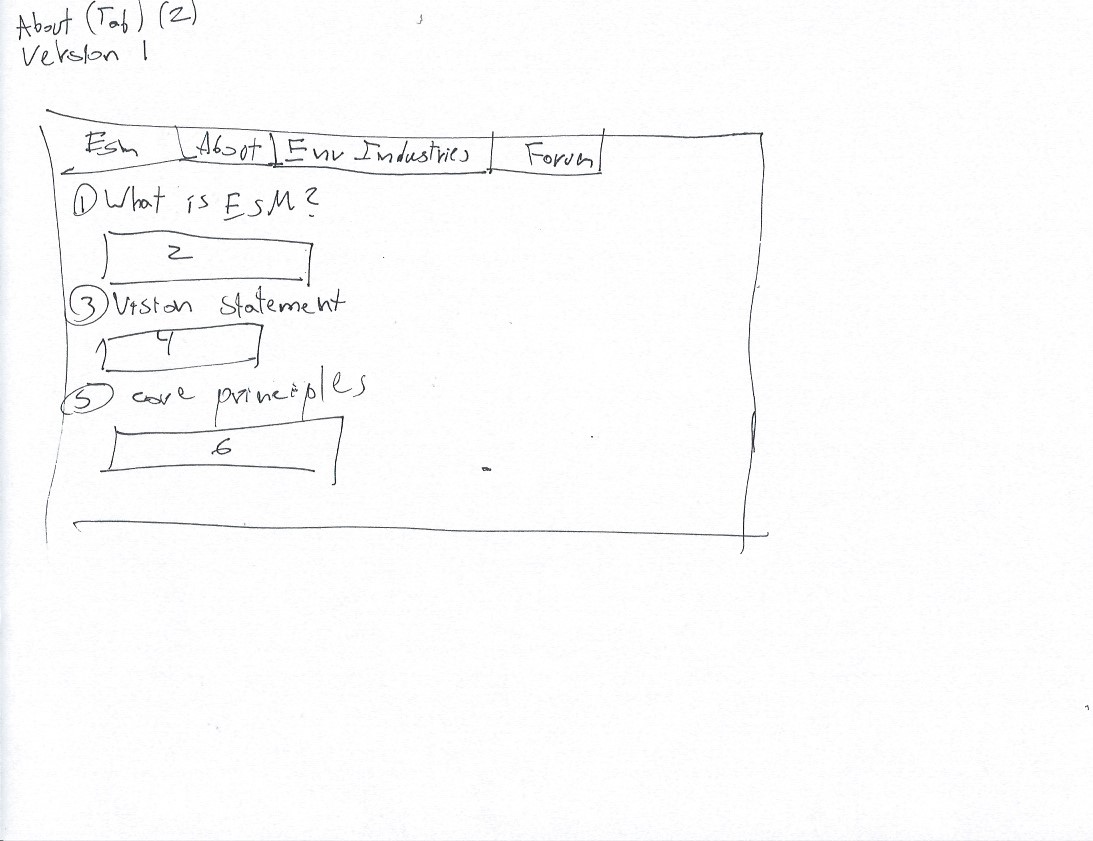 About (Tab) (2)
Version 1
Esm About Env Industries Forum
① What is EsM?
2
③ Vision statement
4
⑤ core principles
6